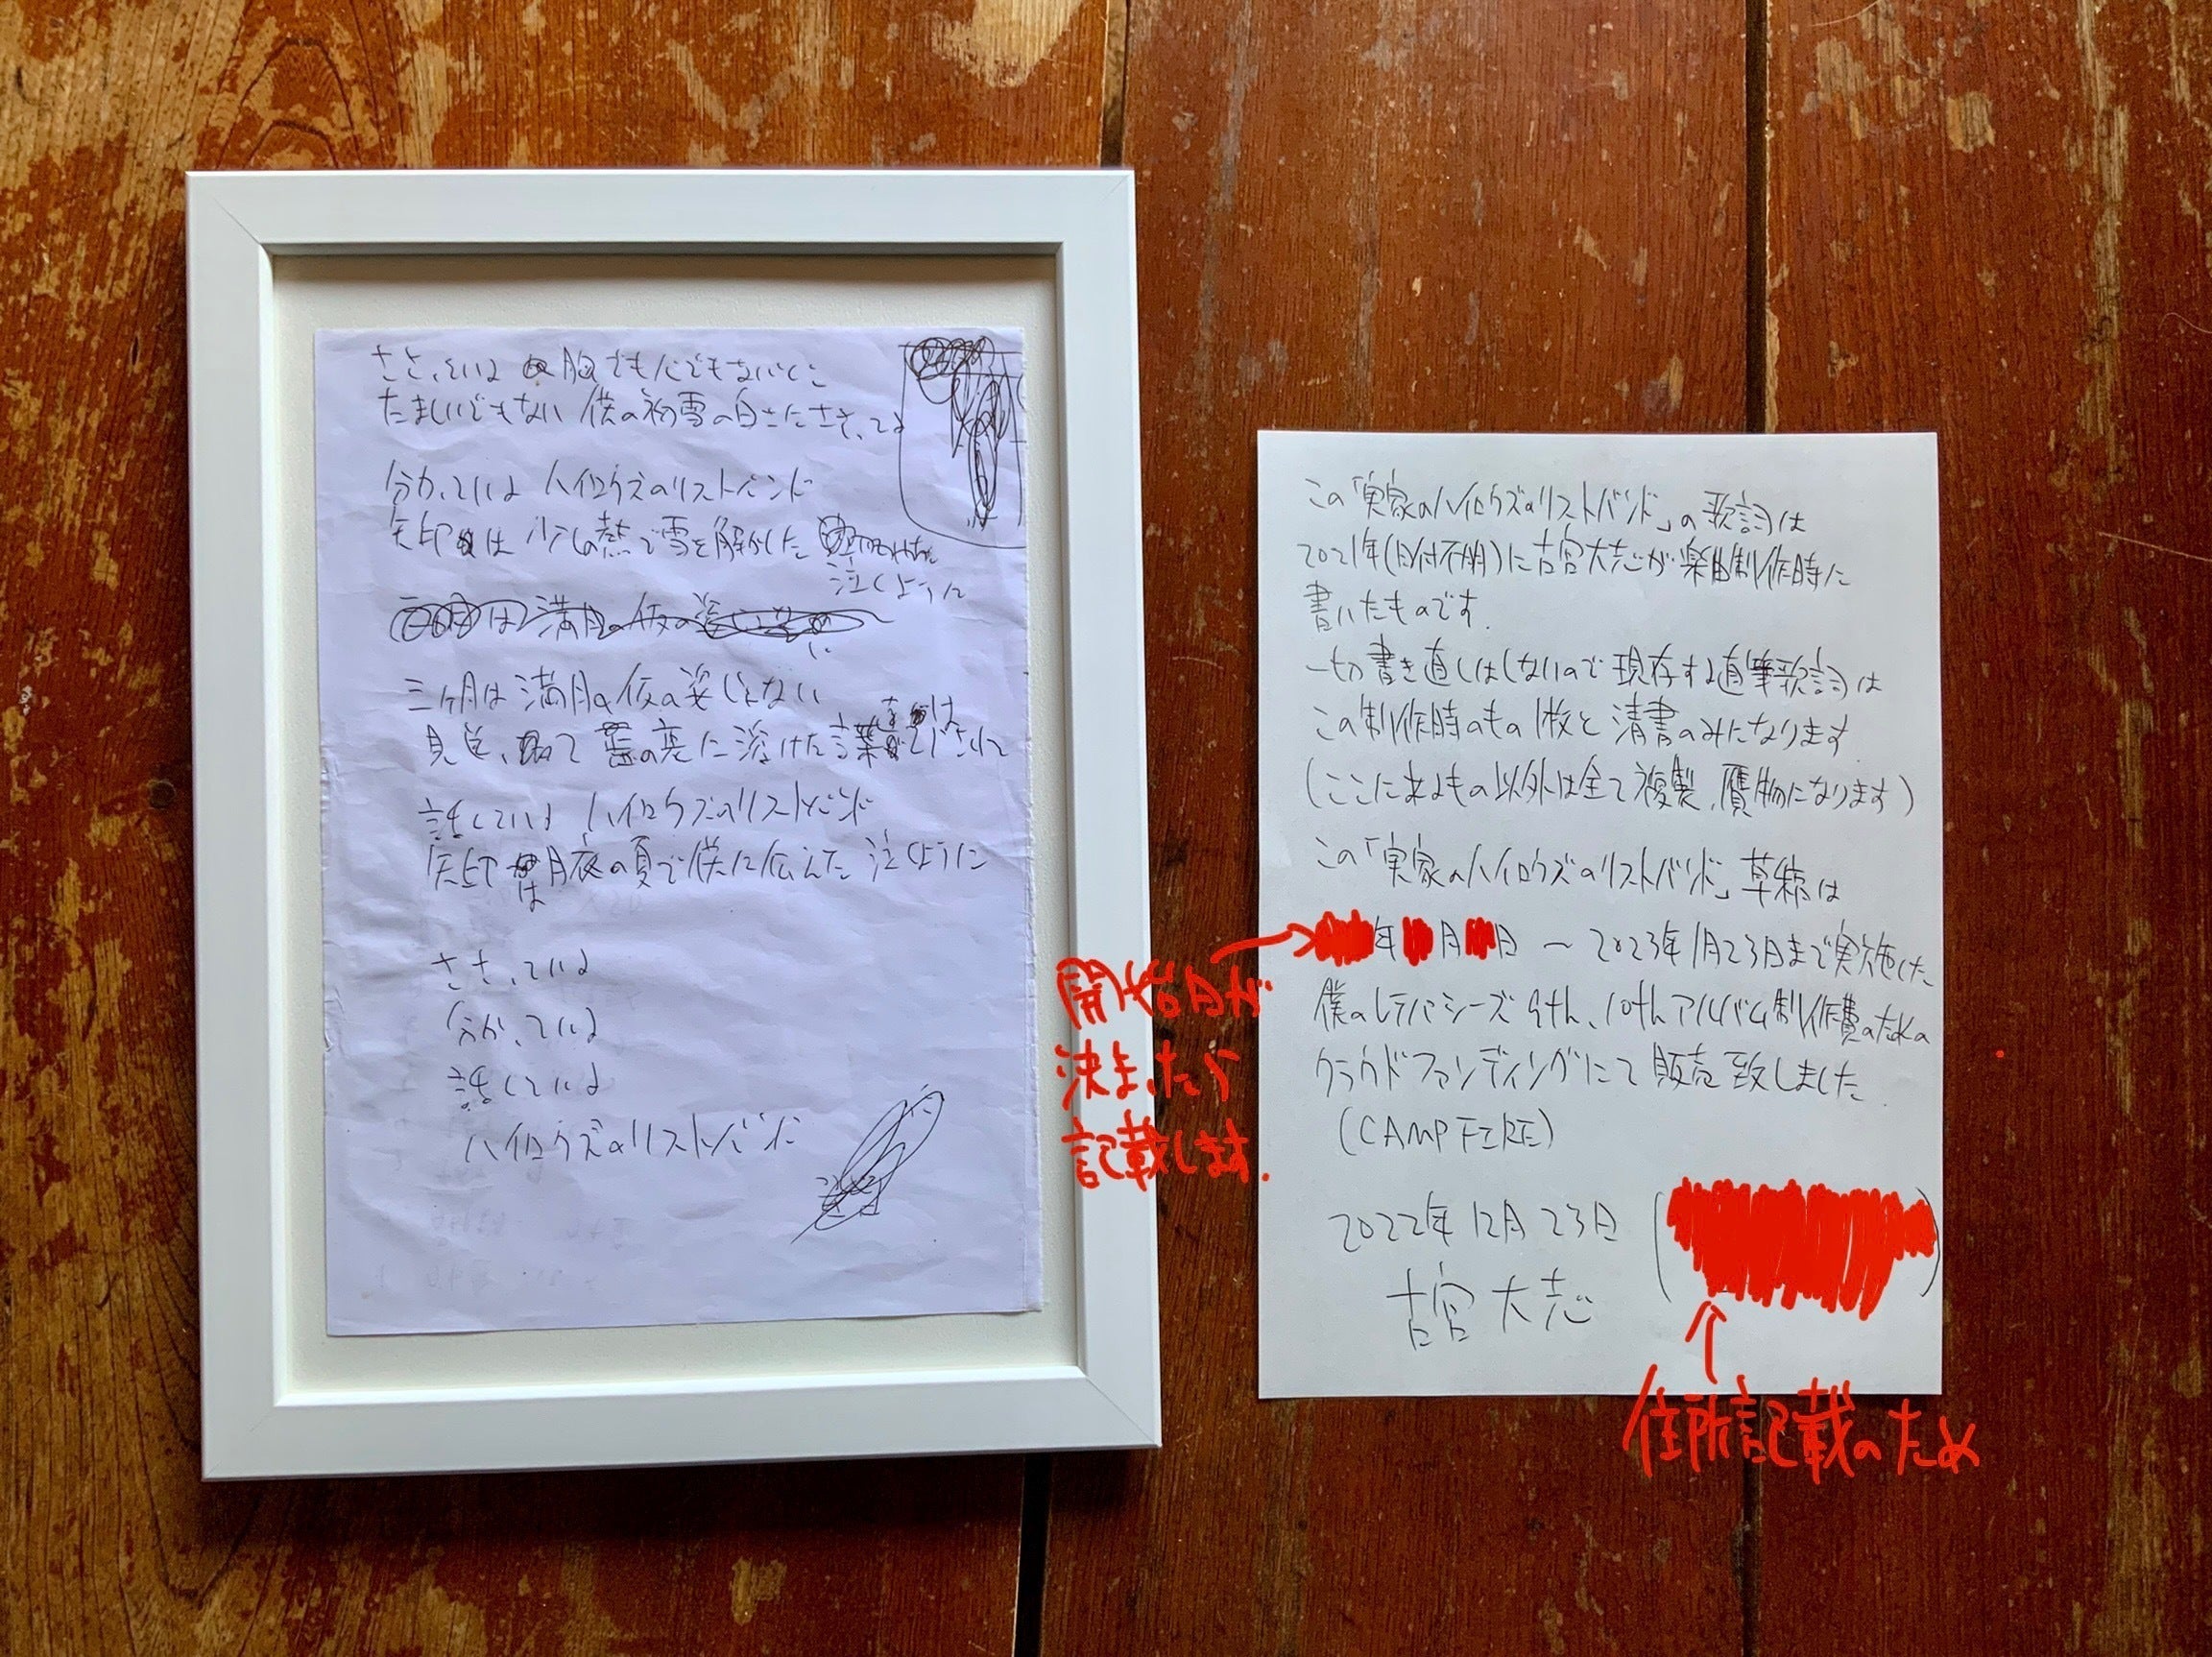 ささっているよ 胸でも心でもないとこ
たましいでもない 僕の初雪の白さにささってる
分かっているよ ハイロウズのリストバンド
矢印は少しの熱で雪を解かした
泣くように
三日月は満月の仮の姿
三ヶ月は満月の仮の姿じゃない
見送って 裏に溶けた言葉
話しているよ ハイロウズのリストバンド
矢印は月夜の夏で僕に伝えた 泣くように
ささっている
分かっている
話している
ハイロウズのリストバンド
この「実家のハイロウズのリストバンド」の歌詞は
2021年(日付不明)に古宮大志が楽曲制作時に
書いたものです.
一切書き直しはしないので現存する直筆歌詞は
この制作時のもの1枚と清書のみになります
(ここに来るもの以外は全て複製、贋物になります)
この「実家のハイロウズのリストバンド」草稿は
年 月 日 〜 2023年1月23日まで実施した
僕のレテパシーズ 9th、10thアルバム制作費のための
クラウドファンディングにて販売致しました.
(CAMPFIRE)
2022年12月23日
古宮大志
開始日が
決まったら
記載します.
住所記載のため